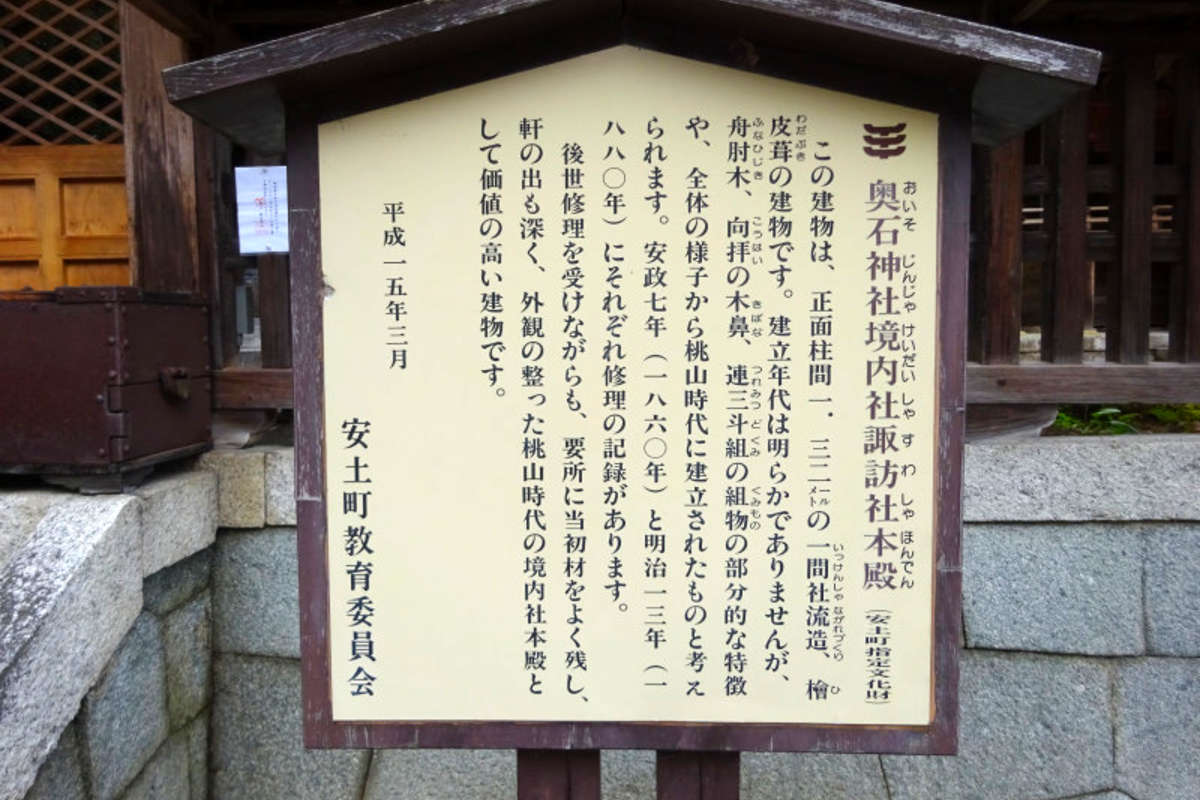 奥石神社境内社諏訪社本殿(安土町指定文化財)
この建物は、正面柱間一.三二㍍の一間社流造、檜
皮葺の建物です。建立年代は明らかでありませんが、
舟肘木、向拝の木鼻、連三斗組の組物の部分的な特徴
や、全体の様子から桃山時代に建立されたものと考え
られます。安政七年(一八六〇年)と明治一三年(一
八八〇年)にそれぞれ修理の記録があります。
後世修理を受けながらも、要所に当初材をよく残し、
軒の出も深く、外観の整った桃山時代の境内社本殿と
して価値の高い建物です。
平成一五年三月
安土町教育委員会